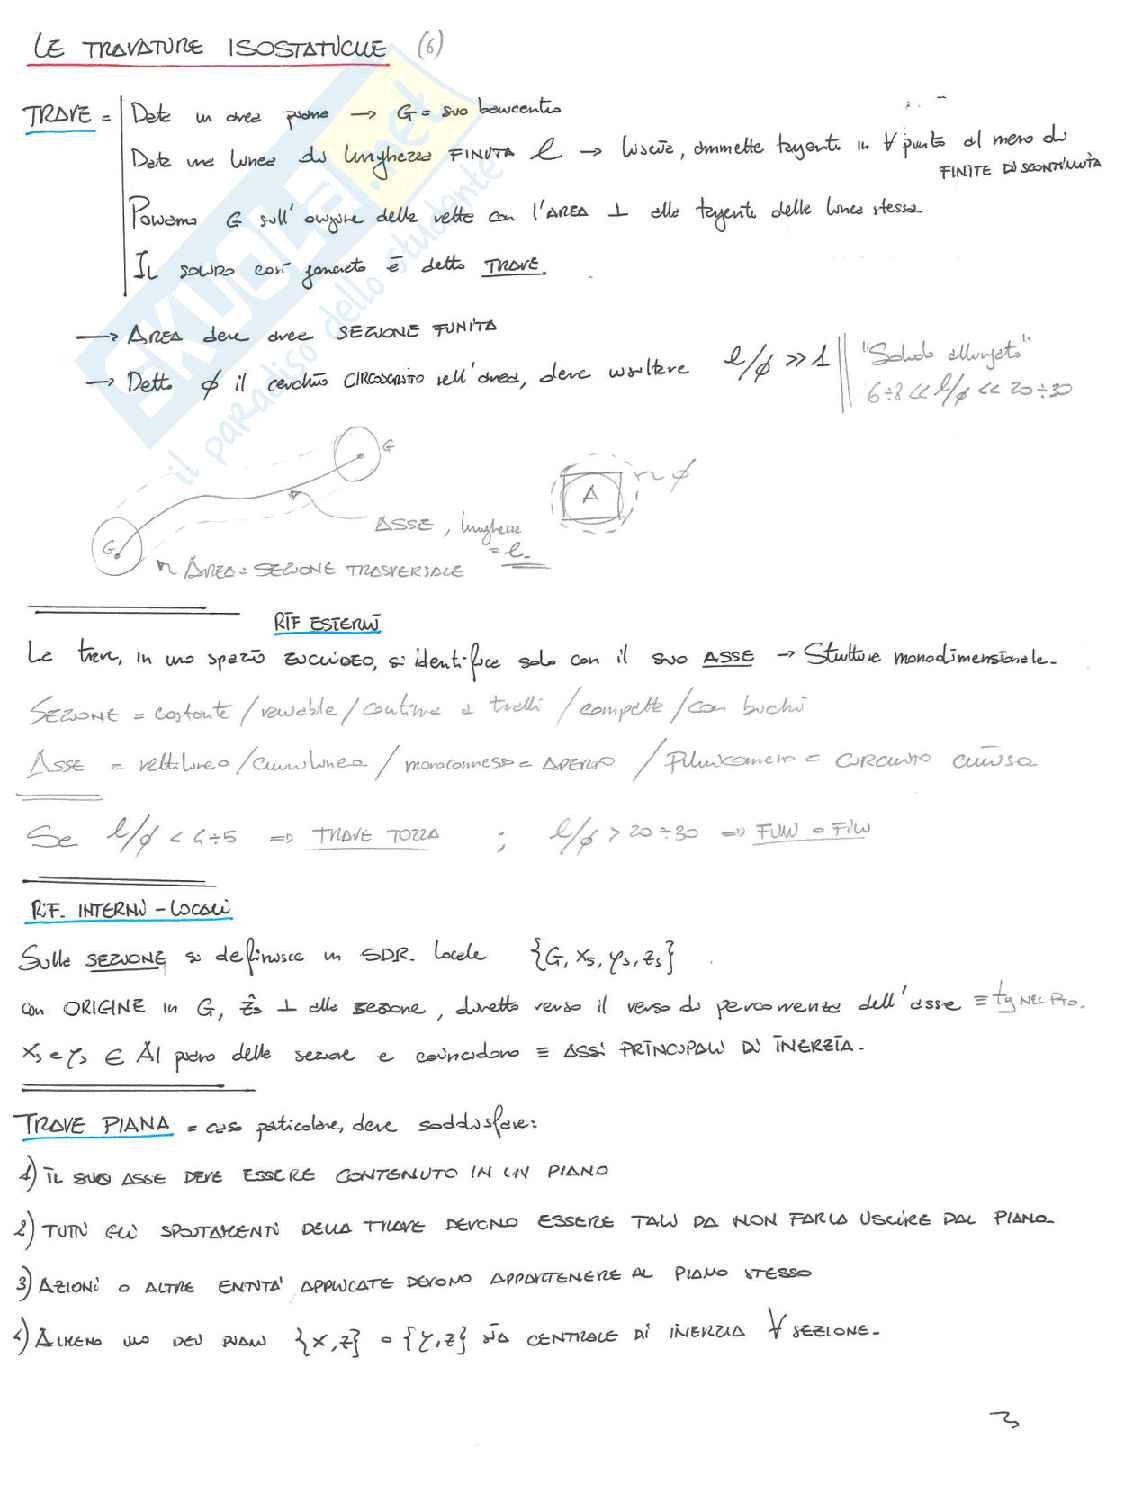 LE TRAVATURE ISOSTATICHE (6)
TRAVE = Data un area piana → G = suo baricentro
Data una linea di lunghezza FINITA l → liscia, ammette tangente in ∀ punto al meno di
FINITE DISCONTINUITÀ
Poniamo G sull'origine della retta con l'AREA ⊥ alla tangente della linea stessa.
IL SOLIDO così generato è detto TRAVE.
→ AREA deve avere SEZIONE FINITA
→ Detto ϕ il cerchio CIRCOSCRITTO nell'area, deve risultare l/ϕ >> 1 "Solido allungato"
6÷8 << l/ϕ << 20÷30
G
A
ϕ
ASSE, lunghezza
= l.
G
AREA = SEZIONE TRASVERSALE
RIF ESTERNI
La trave, in uno spazio EUCLIDEO, si identifica solo con il suo ASSE → Strutture monodimensionale.
SEZIONE = costante / variabile / continua a tratti / compatta / con buchi
ASSE = rettilineo / curvilineo / monoconnesso = APERTO / Pluriconnesso = CIRCUITO CHIUSO
Se l/ϕ < 4÷5 ⇒ TRAVE TOZZA ; l/ϕ > 20÷30 ⇒ FUNI o FILI
RIF. INTERNI - LOCALI
Sulla SEZIONE si definisce un SDR. locale {G, xs, ys, zs}
con ORIGINE in G, ẑs ⊥ alla sezione, diretto verso il verso di percorrenza dell'asse ≡ tg NEL PTO.
xs e ys ∈ Al piano della sezione e coincidono ≡ ASSI PRINCIPALI DI INERZIA.
TRAVE PIANA = caso particolare, deve soddisfare:
1) IL SUO ASSE DEVE ESSERE CONTENUTO IN UN PIANO
2) TUTTI GLI SPOSTAMENTI DELLA TRAVE DEVONO ESSERE TALI DA NON FARLA USCIRE DAL PIANO.
3) AZIONI O ALTRE ENTITA' APPLICATE DEVONO APPARTENERE AL PIANO STESSO
4) ALMENO UNO DEI PIANI {X,Z} o {Y,Z} SIA CENTRALE DI INERZIA ∀ SEZIONE.
3
SKUOLA.net
il paradiso dello studente